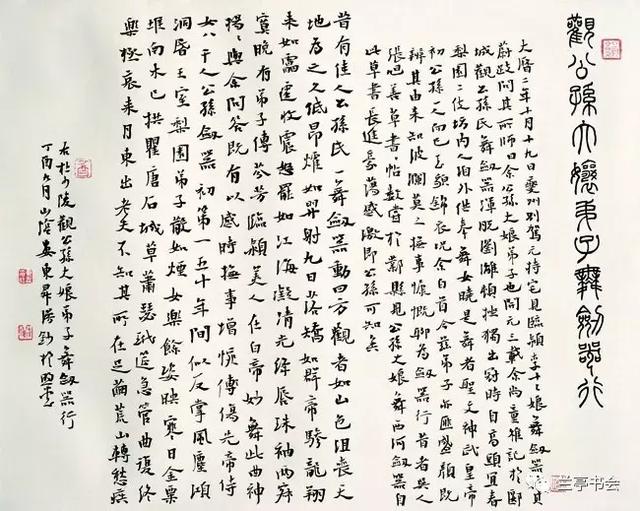 觀公孫大孃弟子舞劍器行
大曆二年十月十九日夔州別駕元持宅見臨潁李十二娘舞劍器壯其
蔚跂問其所師曰余公孫大娘弟子也開元三載余尚童稚記於郾
城觀公孫氏舞劍器渾脫瀏灕頓挫獨出冠時自高頭宜春
梨園二伎坊內人洎外供奉舞女曉是舞者聖文神武皇帝
初公孫一人而已玉貌錦衣況余白首今茲弟子亦匪盛顏既
辨其由來知波瀾莫二撫事慷慨聊為劍器行昔者吳人
張旭善草書帖數嘗於鄴縣見公孫大娘舞西河劍器自
此草書長進豪蕩感激即公孫可知矣
昔有佳人公孫氏一舞劍器動四方觀者如山色沮喪天
地為之久低昂㸌如羿射九日落矯如群帝驂龍翔
來如雷霆收震怒罷如江海凝清光絳唇珠袖兩寂
寞晚有弟子傳芬芳臨潁美人在白帝妙舞此曲神
揚揚與余問答既有以感時撫事增惋傷先帝侍
女八千人公孫劍器初第一五十年間似反掌風塵澒
洞昏王室梨園弟子散如煙女樂餘姿映寒日金粟
堆南木已拱瞿唐石城草蕭瑟玳筵急管曲復終
樂極哀來月東出老夫不知其所往足繭荒山轉愁疾
右杜少陵觀公孫大娘弟子舞劍器行
丁酉 月山陰婁東昇
兰亭书会